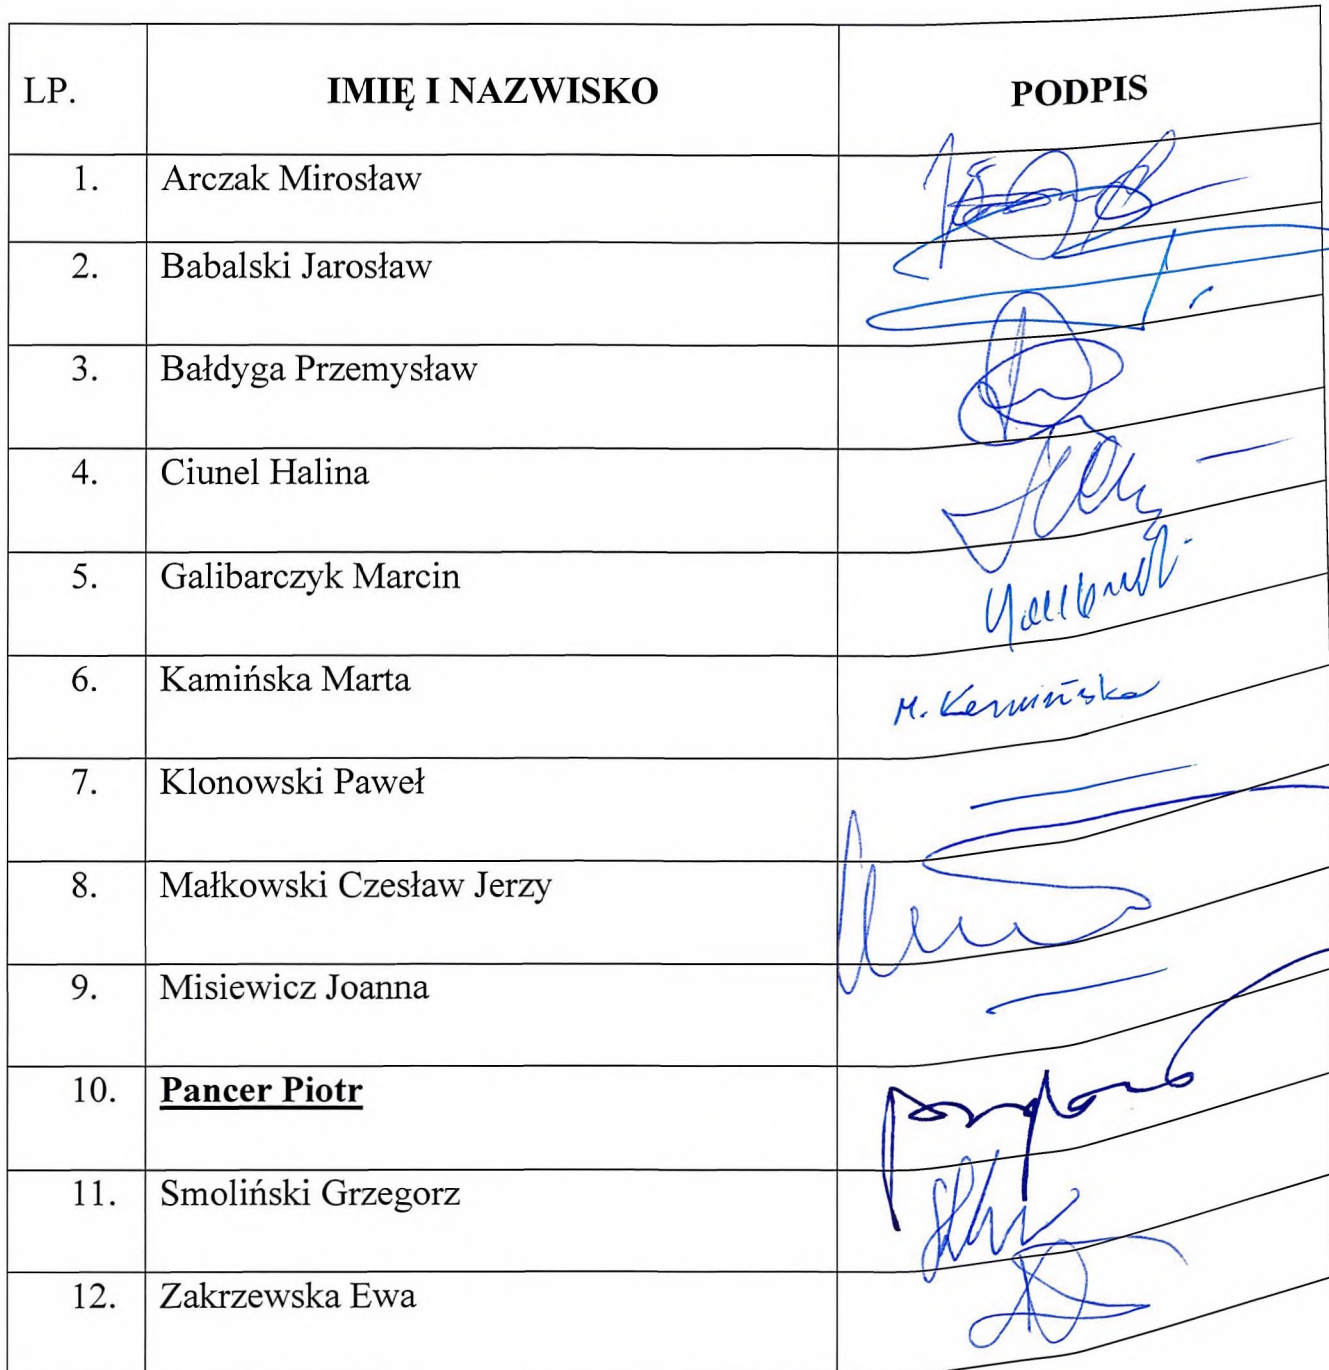 LP. IMIĘ I NAZWISKO PODPIS
1. Arczak Mirosław
2. Babalski Jarosław
3. Bałdyga Przemysław
4. Ciunel Halina
5. Galibarczyk Marcin
6. Kamińska Marta M. Kamińska
7. Klonowski Paweł
8. Małkowski Czesław Jerzy
9. Misiewicz Joanna
10. Pancer Piotr
11. Smoliński Grzegorz
12. Zakrzewska Ewa